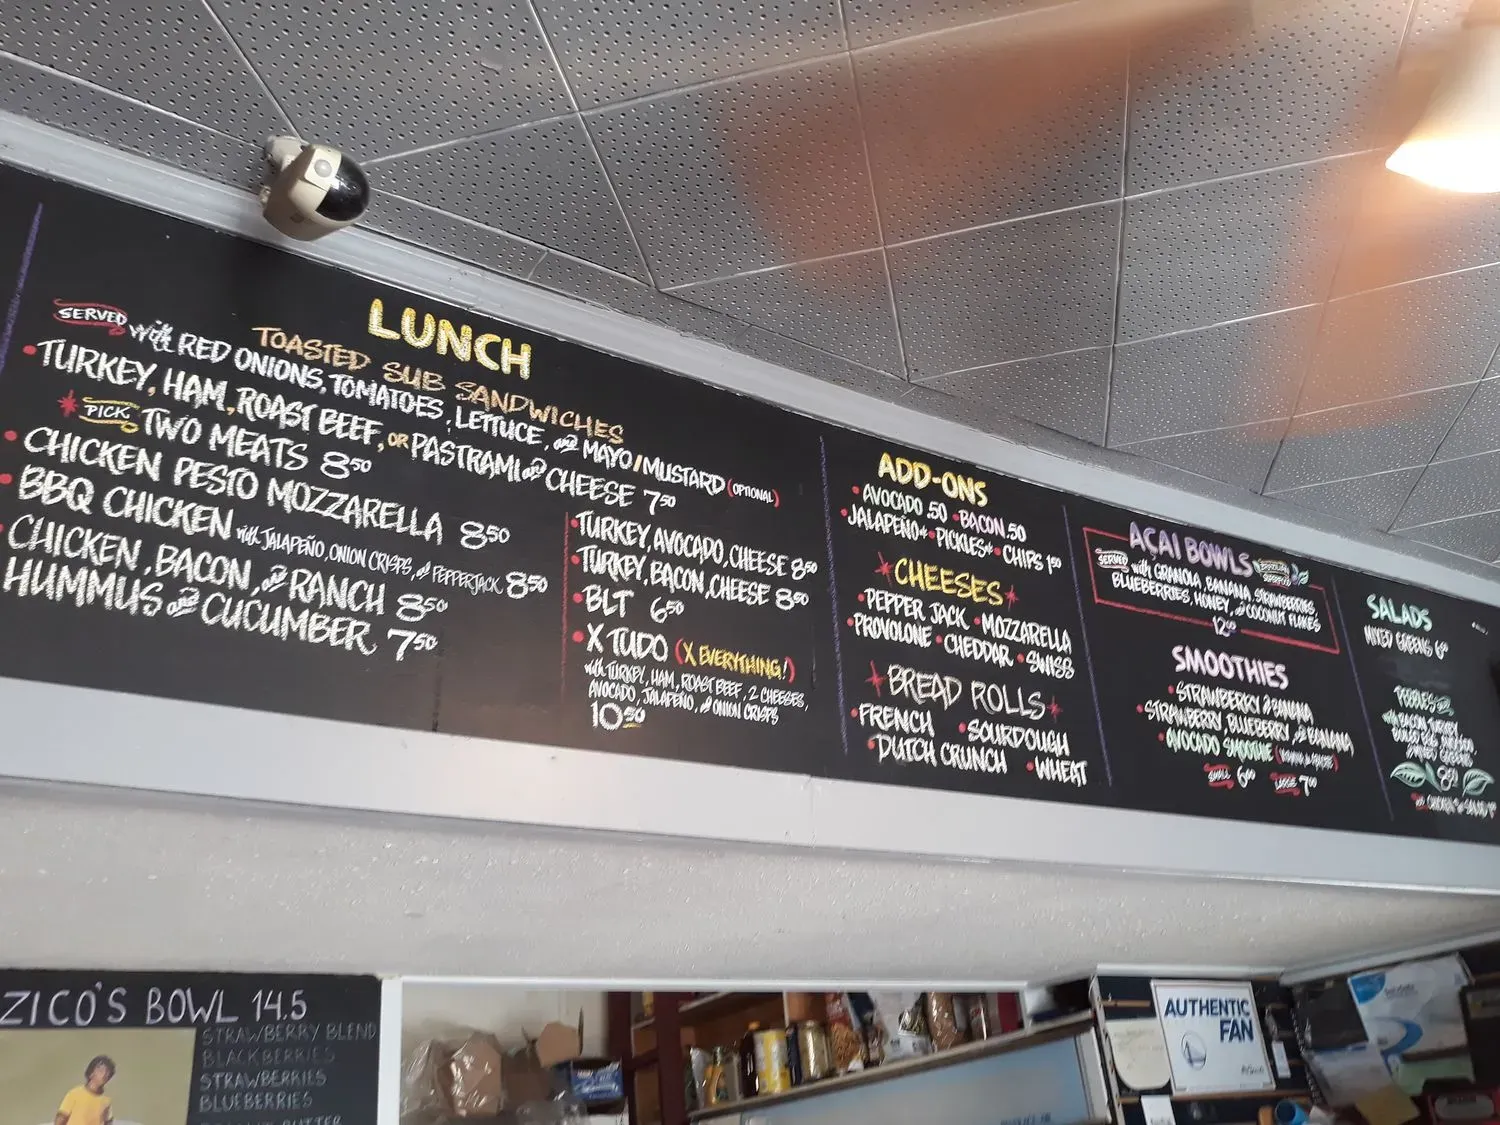 LUNCH
TOASTED SUB SANDWICHES
SERVED with RED ONIONS, TOMATOES, LETTUCE, and MAYO/MUSTARD (OPTIONAL)
• TURKEY, HAM, ROAST BEEF, OR PASTRAMI and CHEESE 7.50
PICK TWO MEATS 8.50
• CHICKEN PESTO MOZZARELLA 8.50
• BBQ CHICKEN with JALAPEÑO, ONION CRISPS, and PEPPERJACK 8.50
• CHICKEN, BACON, and RANCH 8.50
HUMMUS and CUCUMBER 7.50
• TURKEY, AVOCADO, CHEESE 8.50
• TURKEY, BACON, CHEESE 8.50
• BLT 6.50
• X TUDO (X EVERYTHING!)
with TURKEY, HAM, ROAST BEEF, 2 CHEESES,
AVOCADO, JALAPEÑO, and ONION CRISPS
10.50
ADD-ONS
• AVOCADO .50 • BACON .50
• JALAPEÑO • PICKLES • CHIPS 1.50
CHEESES
• PEPPER JACK • MOZZARELLA
• PROVOLONE • CHEDDAR • SWISS
BREAD ROLLS
• FRENCH • SOURDOUGH
• DUTCH CRUNCH • WHEAT
AÇAI BOWLS
SERVED with GRANOLA, BANANA, STRAWBERRIES,
BLUEBERRIES, HONEY, and COCONUT FLAKES
SMOOTHIES
• STRAWBERRY & BANANA
• STRAWBERRY, BLUEBERRY, and BANANA
• AVOCADO SMOOTHIE
SMALL 6.00 LARGE 7.00
SALADS
MIXED GREENS
ZICO'S BOWL 14.5
STRAWBERRY BLEND
BLACKBERRIES
STRAWBERRIES
BLUEBERRIES
AUTHENTIC
FAN